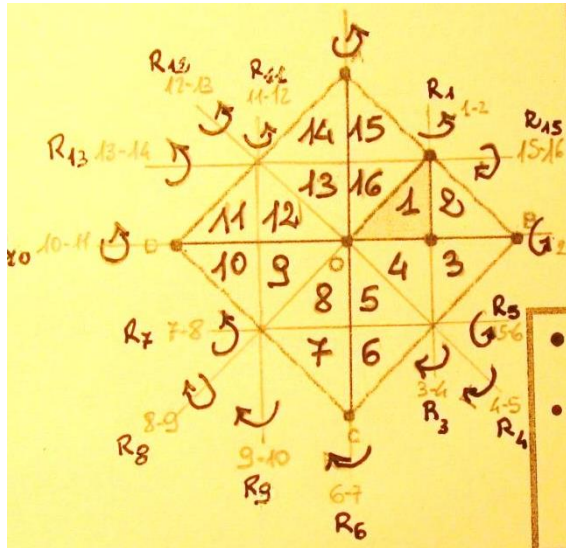 R12
12-13
R11
11-12
R1
1-2
R15
15-16
R13 13-14
14 15
13 16
1 2
11 12
10-11
D
B
2
10 9
O
4 3
8 5
7 6
R7 7-8
R5
5-6
8-9
R8
9-10
R9
3-4
R3
4-5
R4
C
6-7
R6